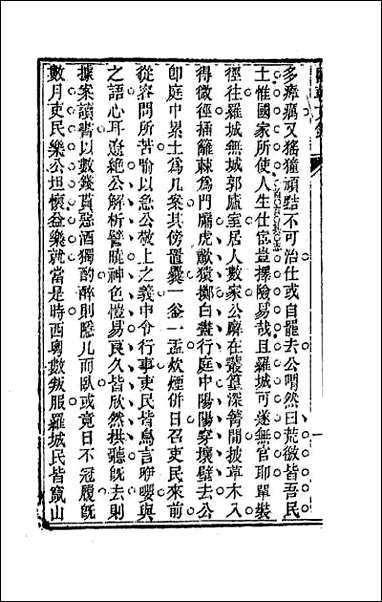 多瘴癘又猺獞頑黠不可治仕或自罷去公閧然曰荒徼皆吾民
土惟國家所使人生仕宦豈擇險易哉且羅城可遂無官耶單裝
徑往羅城無城郭廬室居人數家公廨在叢篁深箐間披草木入
得微徑插籬棘爲門屬虎敵猿擲白晝行庭中陽陽穿壞壁去公
卽庭中累土爲几案其傍置爨一釜一盂炊煙併日召吏民來前
從容問所苦喻以急公敬上之義申令行事吏民皆鳥言咿嚶與
之語心耳遼絶公解析譬曉神色愷易良久皆欣然拱聽旣去則
據案讀書以數錢貰惡酒獨酌醉則隱儿而臥或竟日不冠履旣
數月吏民樂公坦懷益樂就當是時西粵數叛服羅城民皆竄山